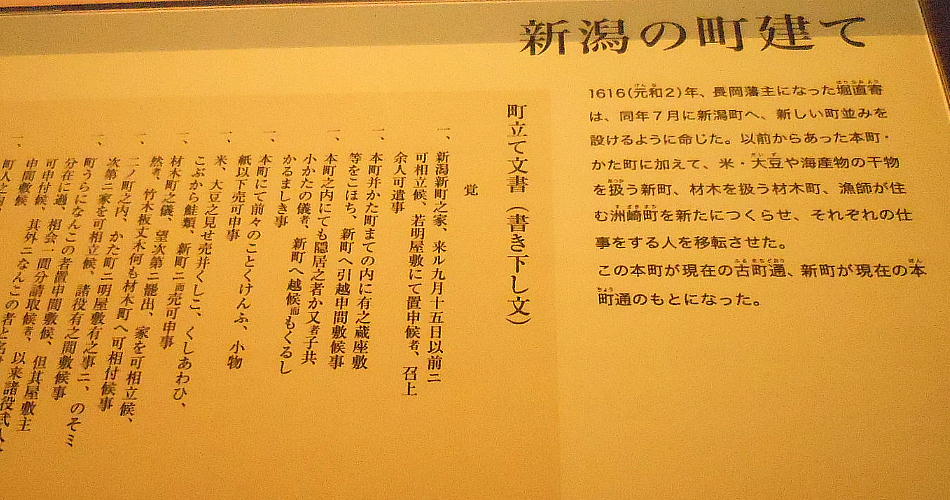 新潟の町建て
1616(元和2)年、長岡藩主になった堀直寄
は、同年7月に新潟町へ、新しい町並みを
設けるように命じた。以前からあった本町・
かた町に加えて、米・大豆や海産物の干物
を扱う新町、材木を扱う材木町、漁師が住
む洲崎町を新たにつくらせ、それぞれの仕
事をする人を移転させた。
この本町が現在の古町通、新町が現在の本
町通のもとになった。
町立て文書(書き下し文)
覚
一、新潟新町之家、来ル九月十五日以前ニ
可相立候、若明屋敷にて置申候者、召上
余人可遣事
一、本町并かた町まての内に有之蔵座敷
等をこほち、新町へ引越申間敷候事
一、本町之内にても隠居之者か又者子共、
小かたの儀者、新町へ越候而もくるし
かるましき事
一、本町にて前々のことくけんふ、小物
紙以下売可申事
一、米、大豆之見せ売并くしこ、くしあわひ、
こぶから鮭類、新町ニ而売可申事
一、材木町之儀、望次第ニ罷出、家を可相立候、
然者、竹木板丈木何も材木町へ可相付候事
一、二ノ町之内、かた町ニ明屋敷有之事ニ、のそミ
次第ニ家を可相立候、諸役有之間敷候事
一、町うらになんこの者置申間敷候、但其屋敷主
分在に過、相会一間分請取候者、以来諸役
可申付候、其外ニなんこの者と
申間敷候